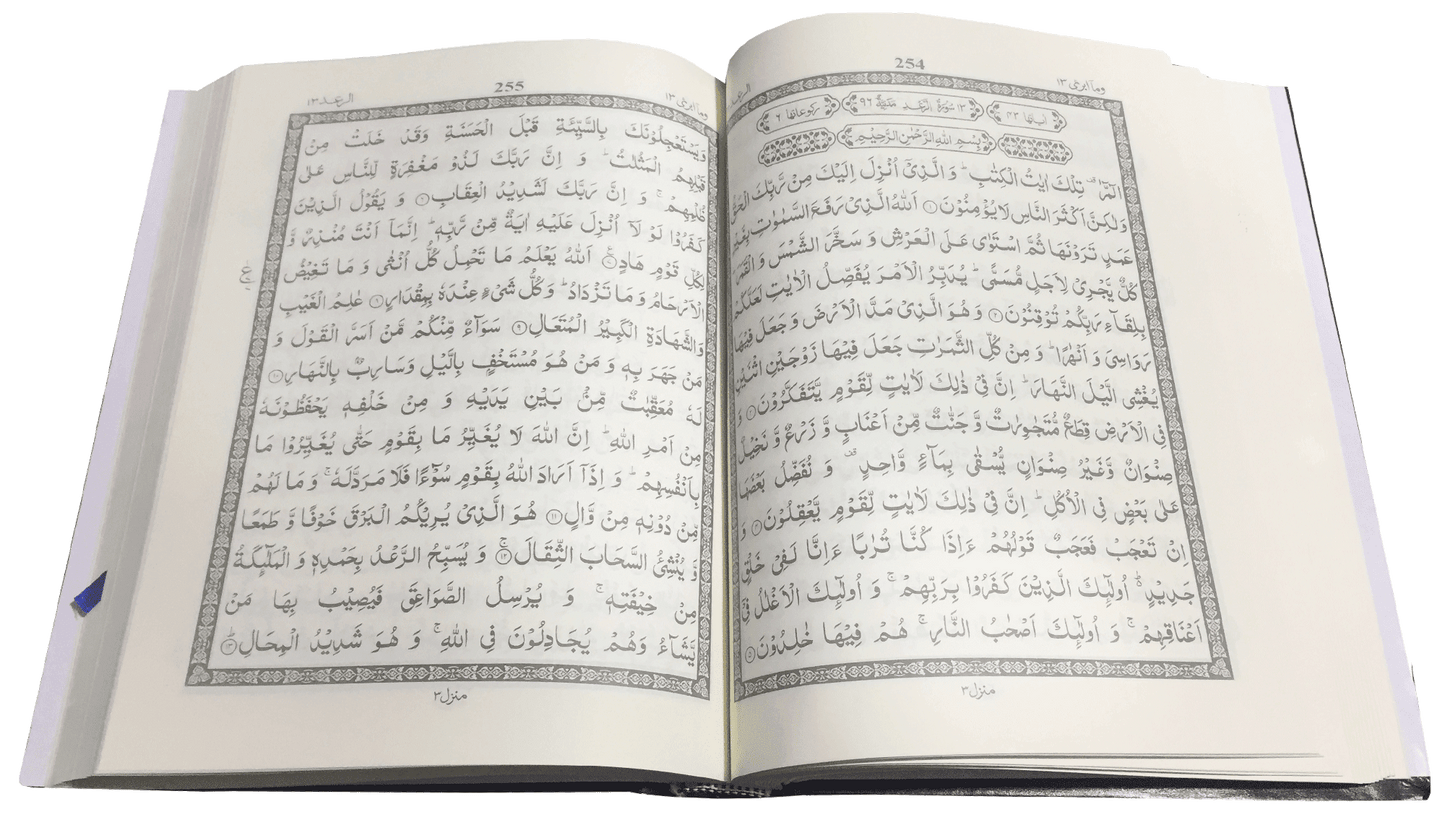 وما ابرئ ١٣
254
اٰیاتها ٤٣
١٣ سُوْرَةُ الرَّعْدِ مَدَنِیَّةٌ ٩٦
رکوعاتها ٦
بِسْمِ اللّٰهِ الرَّحْمٰنِ الرَّحِیْمِ
الٓمّٓرٰ تِلْكَ اٰیٰتُ الْكِتٰبِ ؕ وَ الَّذِیْۤ اُنْزِلَ اِلَیْكَ مِنْ رَّبِّكَ الْحَقُّ
وَلٰكِنَّ اَكْثَرَ النَّاسِ لَا یُؤْمِنُوْنَ ۝١ اَللّٰهُ الَّذِیْ رَفَعَ السَّمٰوٰتِ بِغَیْرِ
عَمَدٍ تَرَوْنَهَا ثُمَّ اسْتَوٰی عَلَی الْعَرْشِ وَ سَخَّرَ الشَّمْسَ وَ الْقَمَرَ
كُلٌّ یَّجْرِیْ لِاَجَلٍ مُّسَمًّی ؕ یُدَبِّرُ الْاَمْرَ یُفَصِّلُ الْاٰیٰتِ لَعَلَّكُمْ
بِلِقَآءِ رَبِّكُمْ تُوْقِنُوْنَ ۝٢ وَ هُوَ الَّذِیْ مَدَّ الْاَرْضَ وَ جَعَلَ فِیْهَا
رَوَاسِیَ وَ اَنْهٰرًا ؕ وَ مِنْ كُلِّ الثَّمَرٰتِ جَعَلَ فِیْهَا زَوْجَیْنِ اثْنَیْنِ
یُغْشِی الَّیْلَ النَّهَارَ ؕ اِنَّ فِیْ ذٰلِكَ لَاٰیٰتٍ لِّقَوْمٍ یَّتَفَكَّرُوْنَ ۝٣ وَ
فِی الْاَرْضِ قِطَعٌ مُّتَجٰوِرٰتٌ وَّ جَنّٰتٌ مِّنْ اَعْنَابٍ وَّ زَرْعٌ وَّ نَخِیْلٌ
صِنْوَانٌ وَّغَیْرُ صِنْوَانٍ یُّسْقٰی بِمَآءٍ وَّاحِدٍ ۫ وَ نُفَضِّلُ بَعْضَهَا
عَلٰی بَعْضٍ فِی الْاُكُلِ ؕ اِنَّ فِیْ ذٰلِكَ لَاٰیٰتٍ لِّقَوْمٍ یَّعْقِلُوْنَ ۝٤ وَ
اِنْ تَعْجَبْ فَعَجَبٌ قَوْلُهُمْ ءَاِذَا كُنَّا تُرٰبًا ءَاِنَّا لَفِیْ خَلْقٍ
جَدِیْدٍ ؕ اُولٰٓئِكَ الَّذِیْنَ كَفَرُوْا بِرَبِّهِمْ ۚ وَ اُولٰٓئِكَ الْاَغْلٰلُ فِیْۤ
اَعْنَاقِهِمْ ۚ وَ اُولٰٓئِكَ اَصْحٰبُ النَّارِ ۚ هُمْ فِیْهَا خٰلِدُوْنَ ۝٥
منزل ٣
وما ابرئ ١٣
255
الرعد ١٣
وَیَسْتَعْجِلُوْنَكَ بِالسَّیِّئَةِ قَبْلَ الْحَسَنَةِ وَقَدْ خَلَتْ مِنْ
قَبْلِهِمُ الْمَثُلٰتُ ؕ وَ اِنَّ رَبَّكَ لَذُوْ مَغْفِرَةٍ لِّلنَّاسِ عَلٰی
ظُلْمِهِمْ ۚ وَ اِنَّ رَبَّكَ لَشَدِیْدُ الْعِقَابِ ۝٦ وَ یَقُوْلُ الَّذِیْنَ
كَفَرُوْا لَوْ لَاۤ اُنْزِلَ عَلَیْهِ اٰیَةٌ مِّنْ رَّبِّهٖ ؕ اِنَّمَاۤ اَنْتَ مُنْذِرٌ وَّ
لِكُلِّ قَوْمٍ هَادٍ ۝٧ اَللّٰهُ یَعْلَمُ مَا تَحْمِلُ كُلُّ اُنْثٰی وَ مَا تَغِیْضُ
الْاَرْحَامُ وَ مَا تَزْدَادُ ؕ وَ كُلُّ شَیْءٍ عِنْدَهٗ بِمِقْدَارٍ ۝٨ عٰلِمُ الْغَیْبِ
وَالشَّهَادَةِ الْكَبِیْرُ الْمُتَعَالِ ۝٩ سَوَآءٌ مِّنْكُمْ مَّنْ اَسَرَّ الْقَوْلَ وَ
مَنْ جَهَرَ بِهٖ وَ مَنْ هُوَ مُسْتَخْفٍۭ بِالَّیْلِ وَسَارِبٌۢ بِالنَّهَارِ ۝١٠
لَهٗ مُعَقِّبٰتٌ مِّنْۢ بَیْنِ یَدَیْهِ وَ مِنْ خَلْفِهٖ یَحْفَظُوْنَهٗ
مِنْ اَمْرِ اللّٰهِ ؕ اِنَّ اللّٰهَ لَا یُغَیِّرُ مَا بِقَوْمٍ حَتّٰی یُغَیِّرُوْا مَا
بِاَنْفُسِهِمْ ؕ وَ اِذَاۤ اَرَادَ اللّٰهُ بِقَوْمٍ سُوْٓءًا فَلَا مَرَدَّ لَهٗ ۚ وَ مَا لَهُمْ
مِّنْ دُوْنِهٖ مِنْ وَّالٍ ۝١١ هُوَ الَّذِیْ یُرِیْكُمُ الْبَرْقَ خَوْفًا وَّ طَمَعًا
وَّ یُنْشِئُ السَّحَابَ الثِّقَالَ ۝١٢ وَ یُسَبِّحُ الرَّعْدُ بِحَمْدِهٖ وَ الْمَلٰٓئِكَةُ
مِنْ خِیْفَتِهٖ ۚ وَ یُرْسِلُ الصَّوَاعِقَ فَیُصِیْبُ بِهَا مَنْ
یَّشَآءُ وَهُمْ یُجَادِلُوْنَ فِی اللّٰهِ ۚ وَ هُوَ شَدِیْدُ الْمِحَالِ ۝١٣
منزل ٣